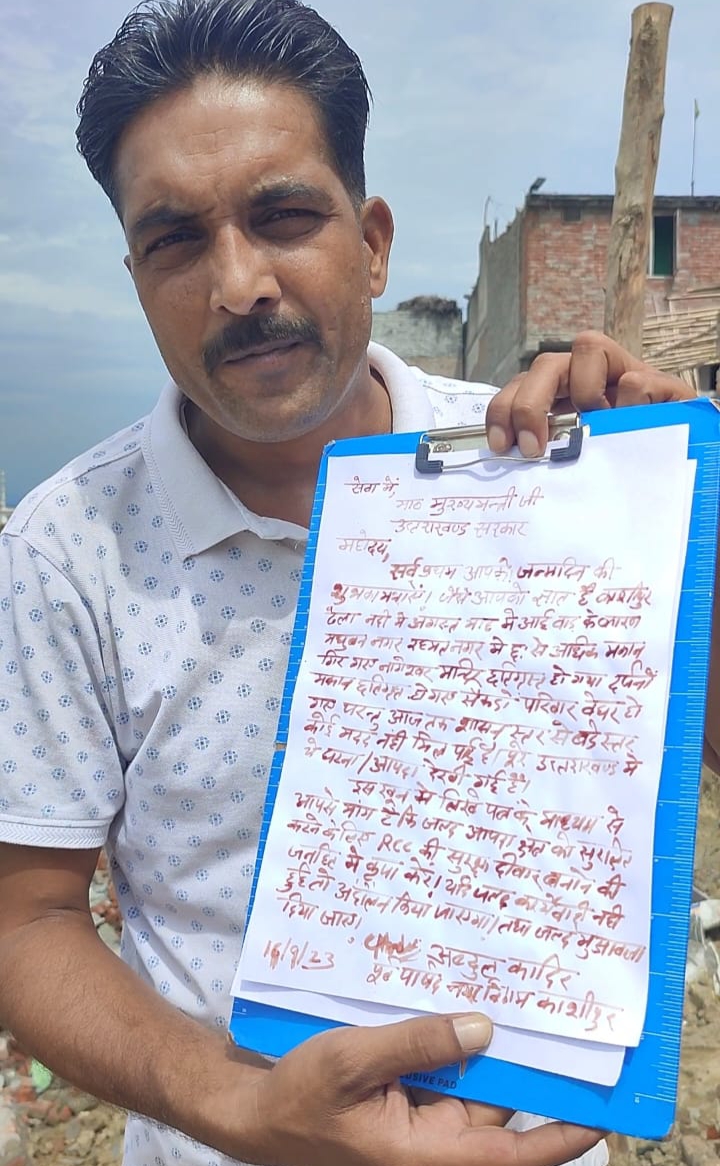 सेवा में,
मा० मुख्यमन्त्री जी
उत्तराखण्ड सरकार
महोदय,
सर्वप्रथम आपको जन्मदिन की
शुभकामनाएं। जैसे आपको ज्ञात है काशीपुर
ढेला नदी मे अगस्त माह मे आई बाढ़ के कारण
मधुबन नगर रहमतनगर मे छः से अधिक मकान
गिर गए नागेश्वर मन्दिर क्षतिग्रस्त हो गया दर्जनों
मकान क्षतिग्रस्त हो गए सैकड़ो परिवार बेघर हो
गए परन्तु आज तक शासन स्तर से बड़े स्तर
कोई मदद नही मिल पाई है। पूरे उत्तराखण्ड मे
ये घटना/आपदा देखी गई है।
इस खून से लिखे पत्र के माध्यम से
आपसे मांग है कि जल्द आपदा क्षेत्र को सुरक्षित
करने के लिए RCC की सुरक्षा दीवार बनाने की
जनहित मे कृपा करे। यदि जल्द कार्यवाही नही
हुई तो आंदोलन किया जाएगा। तथा जल्द मुआवजा
दिया जाए।
अब्दुल कादिर
16/9/23
पूर्व पार्षद नगर निगम काशीपुर
USIVE PAD